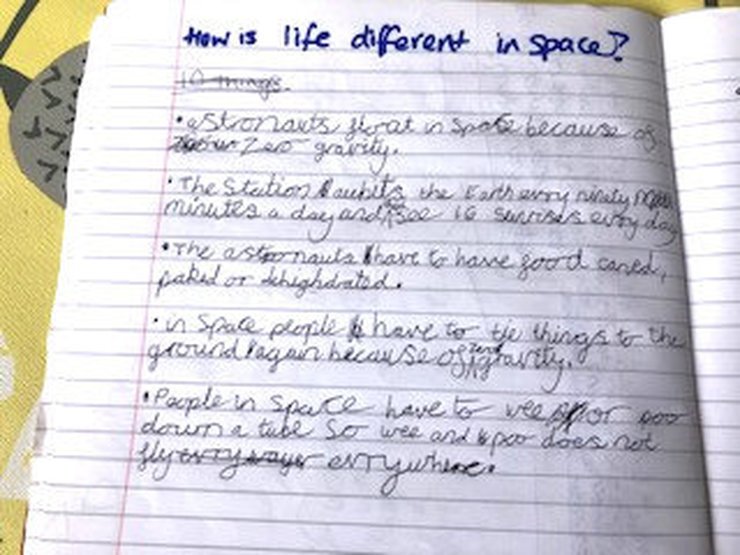 How is life different in space?
10 things.
• astronauts float in space because of
zero gravity.
• The Station aubits the Earth evry ninety
minutes a day and see 16 sunrises evry day
• The astronauts have to have good caned,
paked or dehighdrated.
• in Space people have to tie things to the
ground again because of zero gravity.
• People in space have to wee or poo
down a tube so wee and poo does not
fly evrywhere.